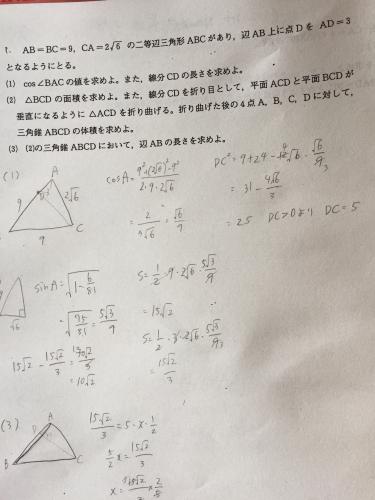 1. AB＝BC＝9，CA＝2√6 の二等辺三角形 ABC があり，辺 AB 上に点 D を AD＝3
となるようにとる。
(1) cos∠BAC の値を求めよ。また，線分 CD の長さを求めよ。
(2) △BCD の面積を求めよ。また，線分 CD を折り目として，平面 ACD と平面 BCD が
垂直になるように △ACD を折り曲げる。折り曲げた後の 4 点 A，B，C，D に対して，
三角錐 ABCD の体積を求めよ。
(3) (2)の三角錐 ABCD において，辺 AB の長さを求めよ。
(1)
A
9
D
3
2√6
9
C
cosA = 9²+(2√6)²-9² / 2・9・2√6
= 2 / √6 = √6 / 9
DC² = 9+24- √6・√6 / 9
= 31- 4√6 / 3
= 25 DC>0より DC = 5
√6
sinA = √1- 6 / 81
= √75 / 81 = 5√3 / 9
15√2 - 15√2 / 3
= 10√2
S= 1/2・9・2√6・5√3 / 9
= 15√2
S= 1/2・3・2√6・5√3 / 9
= 15√2 / 3
(3)
A
D
B
C
15√2 / 3 = 5・x・1/2
5/2 x = 15√2 / 3
x =